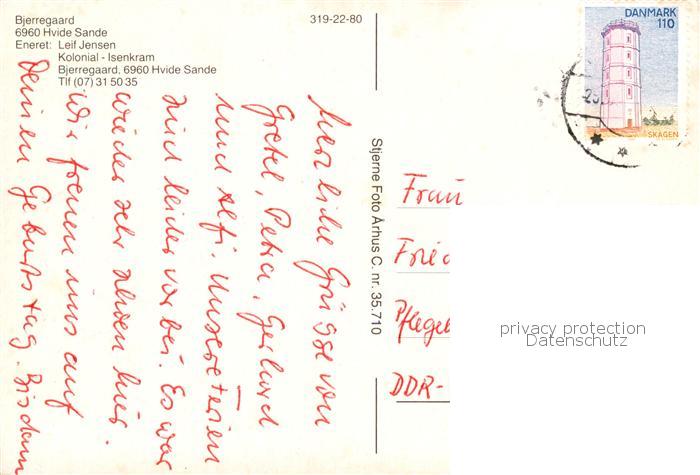 Bjerregaard
6960 Hvide Sande
Eneret: Leif Jensen
Kolonial - Isenkram
Bjerregaard, 6960 Hvide Sande
Tlf (07) 31 50 35
319-22-80
DANMARK
110
SKAGEN
Herzliche Grüsse von
Gretel, Petra, Gerhard
und Alfi. Unsere Ferien
sind leider vorbei. Es war
wieder sehr schön hier.
Wir freuen uns auf
Deinen Geburtstag. Bis dann
Stjerne Foto Århus C. nr. 35.710
Frau
Fried
Pflege
DDR-
privacy protection
Datenschutz